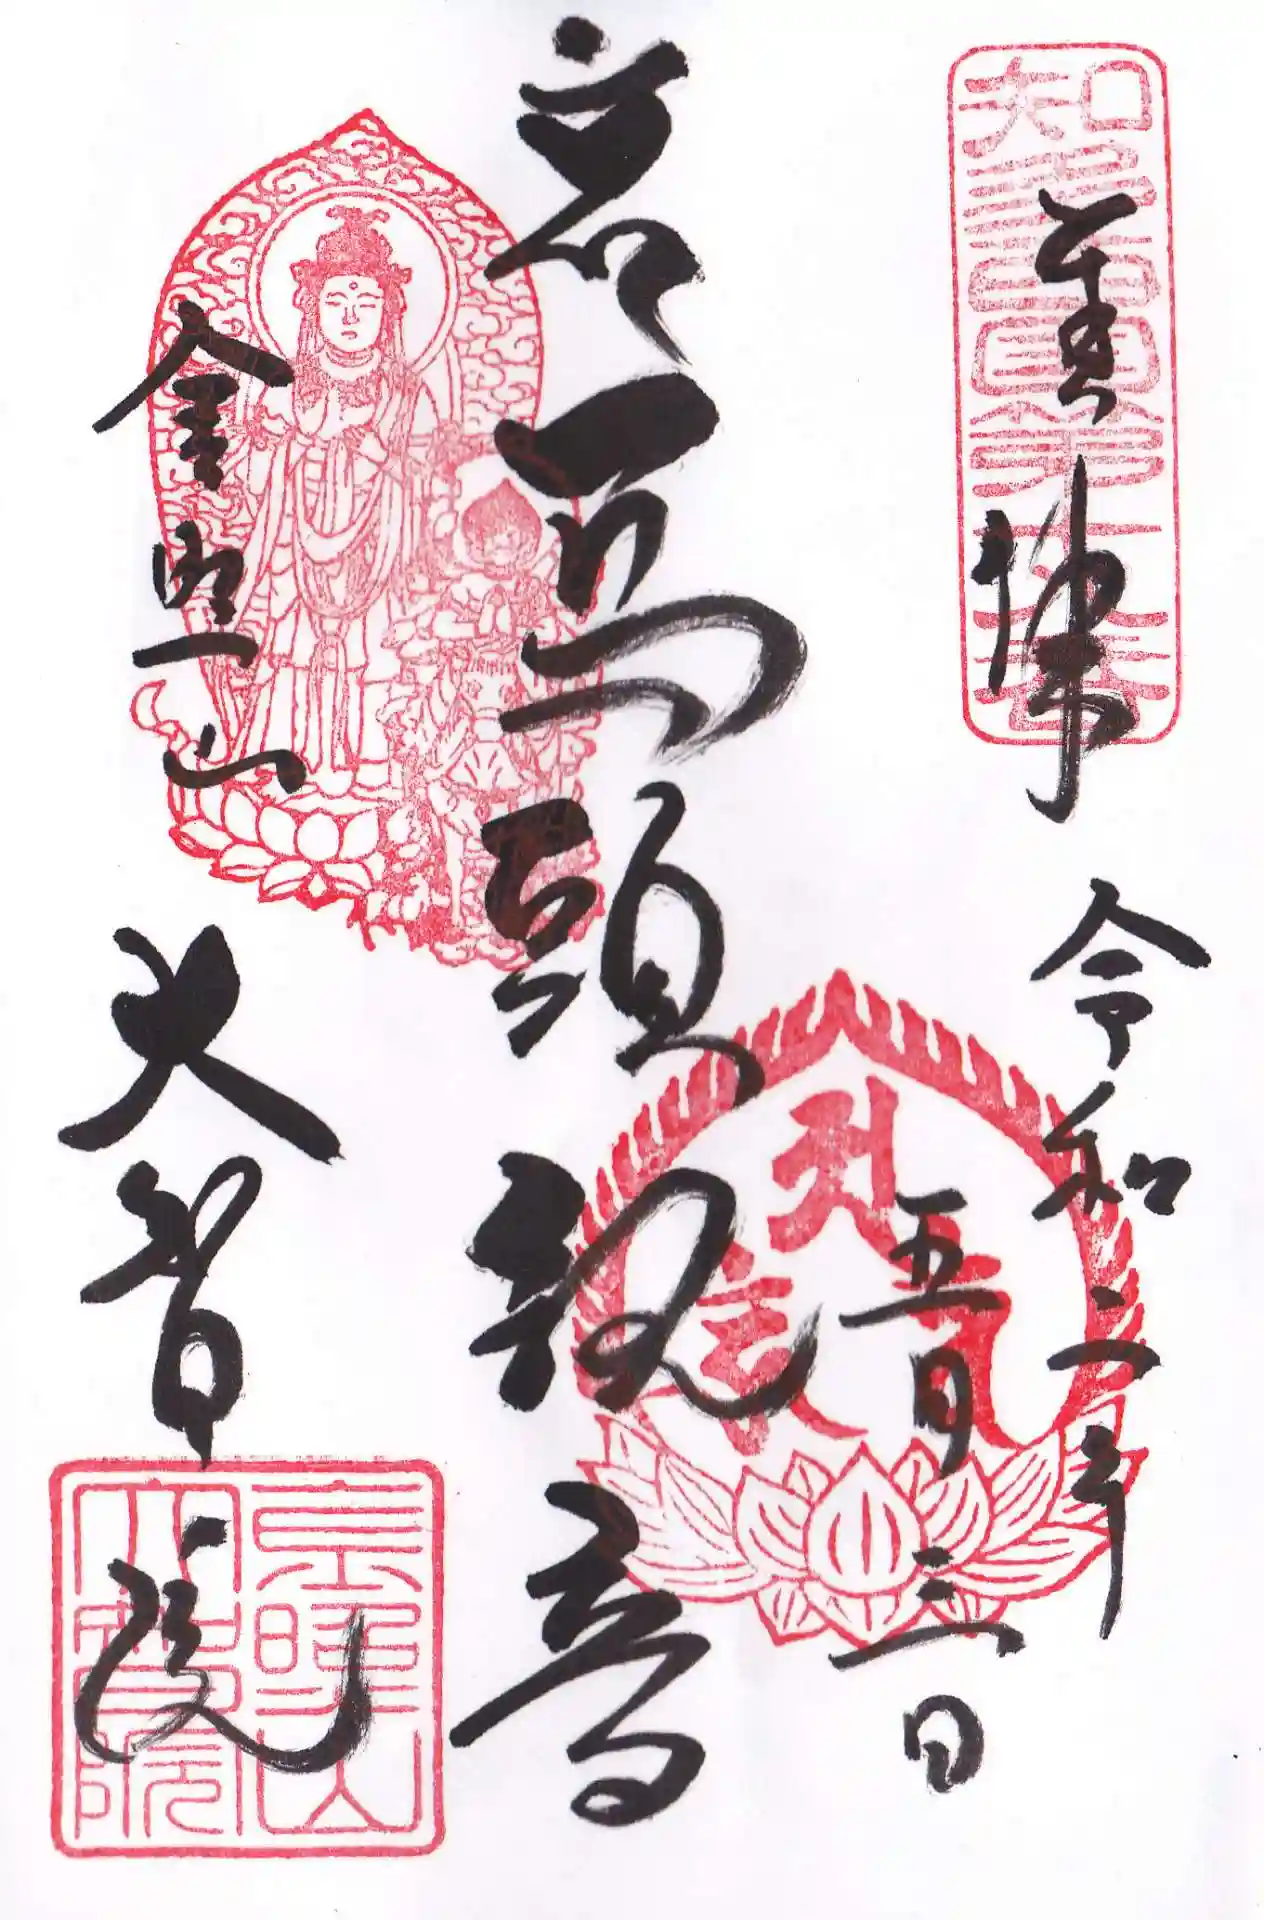 奉拝
令和二年
五月三日
馬頭観音
金照山
大智院
金照山
大智院